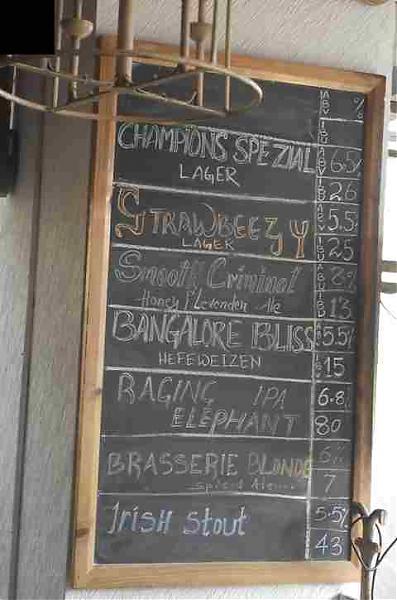 ABV %
IBU
CHAMPIONS SPEZIAL ABV 6.5%
LAGER IBU 26
STRAWBEEZY ABV 5.5
LAGER IBU 25
Smooth Criminal ABV 8%
Honey / Lavender Ale IBU 13
BANGALORE BLISS 5.5%
HEFEWEIZEN 15
RAGING IPA 6.8%
ELEPHANT 80
BRASSERIE BLONDE 6%
7
IRISH Stout 5.5%
43